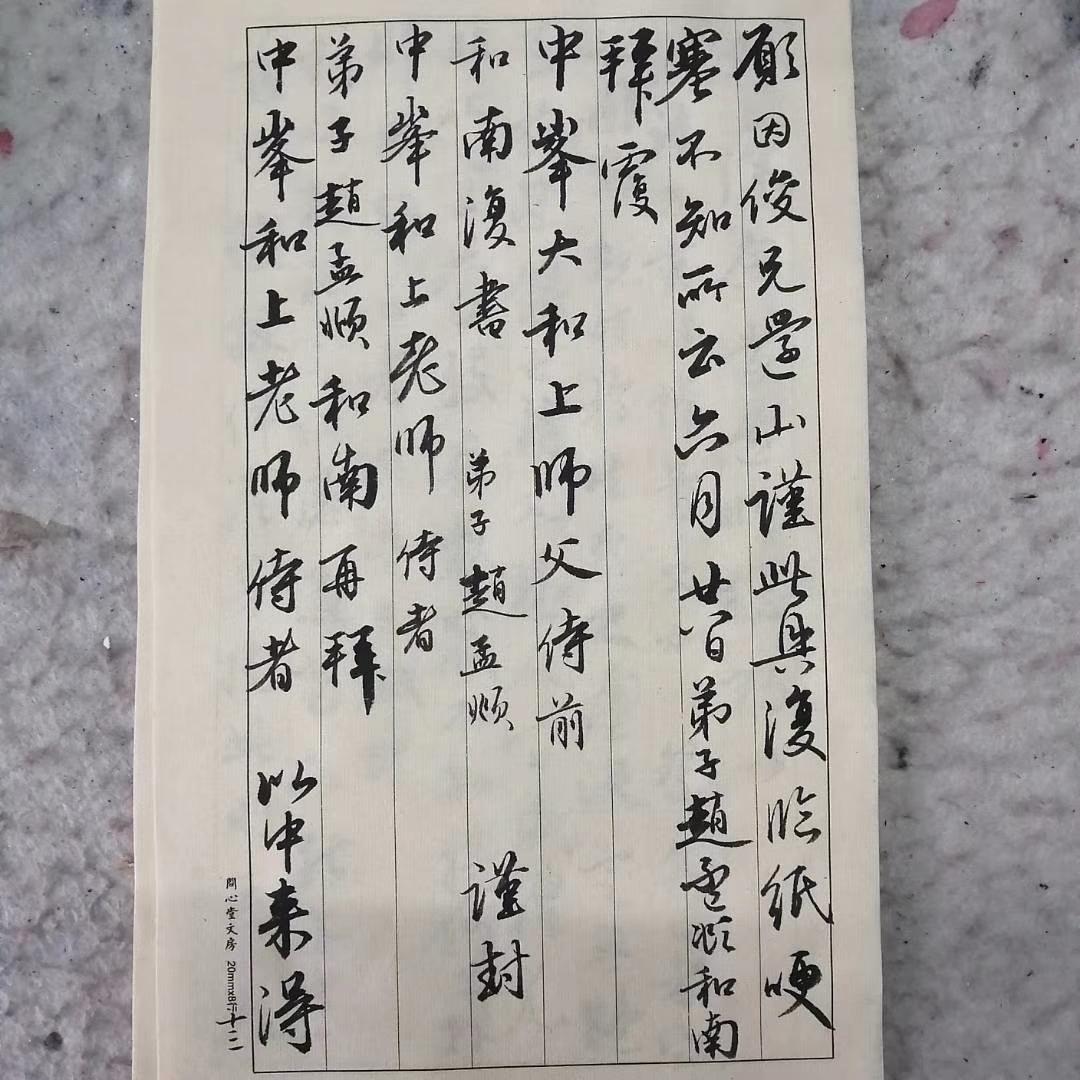 願因俊兄還山謹此具復臨紙哽
塞不知所云六月廿八日弟子趙孟頫和南
拜覆
中峯大和上師父侍前
和南復書 弟子趙孟頫 謹封
中峯和上老師 侍者
弟子趙孟頫和南再拜
中峯和上老師侍者 以中来得
開心堂文房 20mmx8行
十二